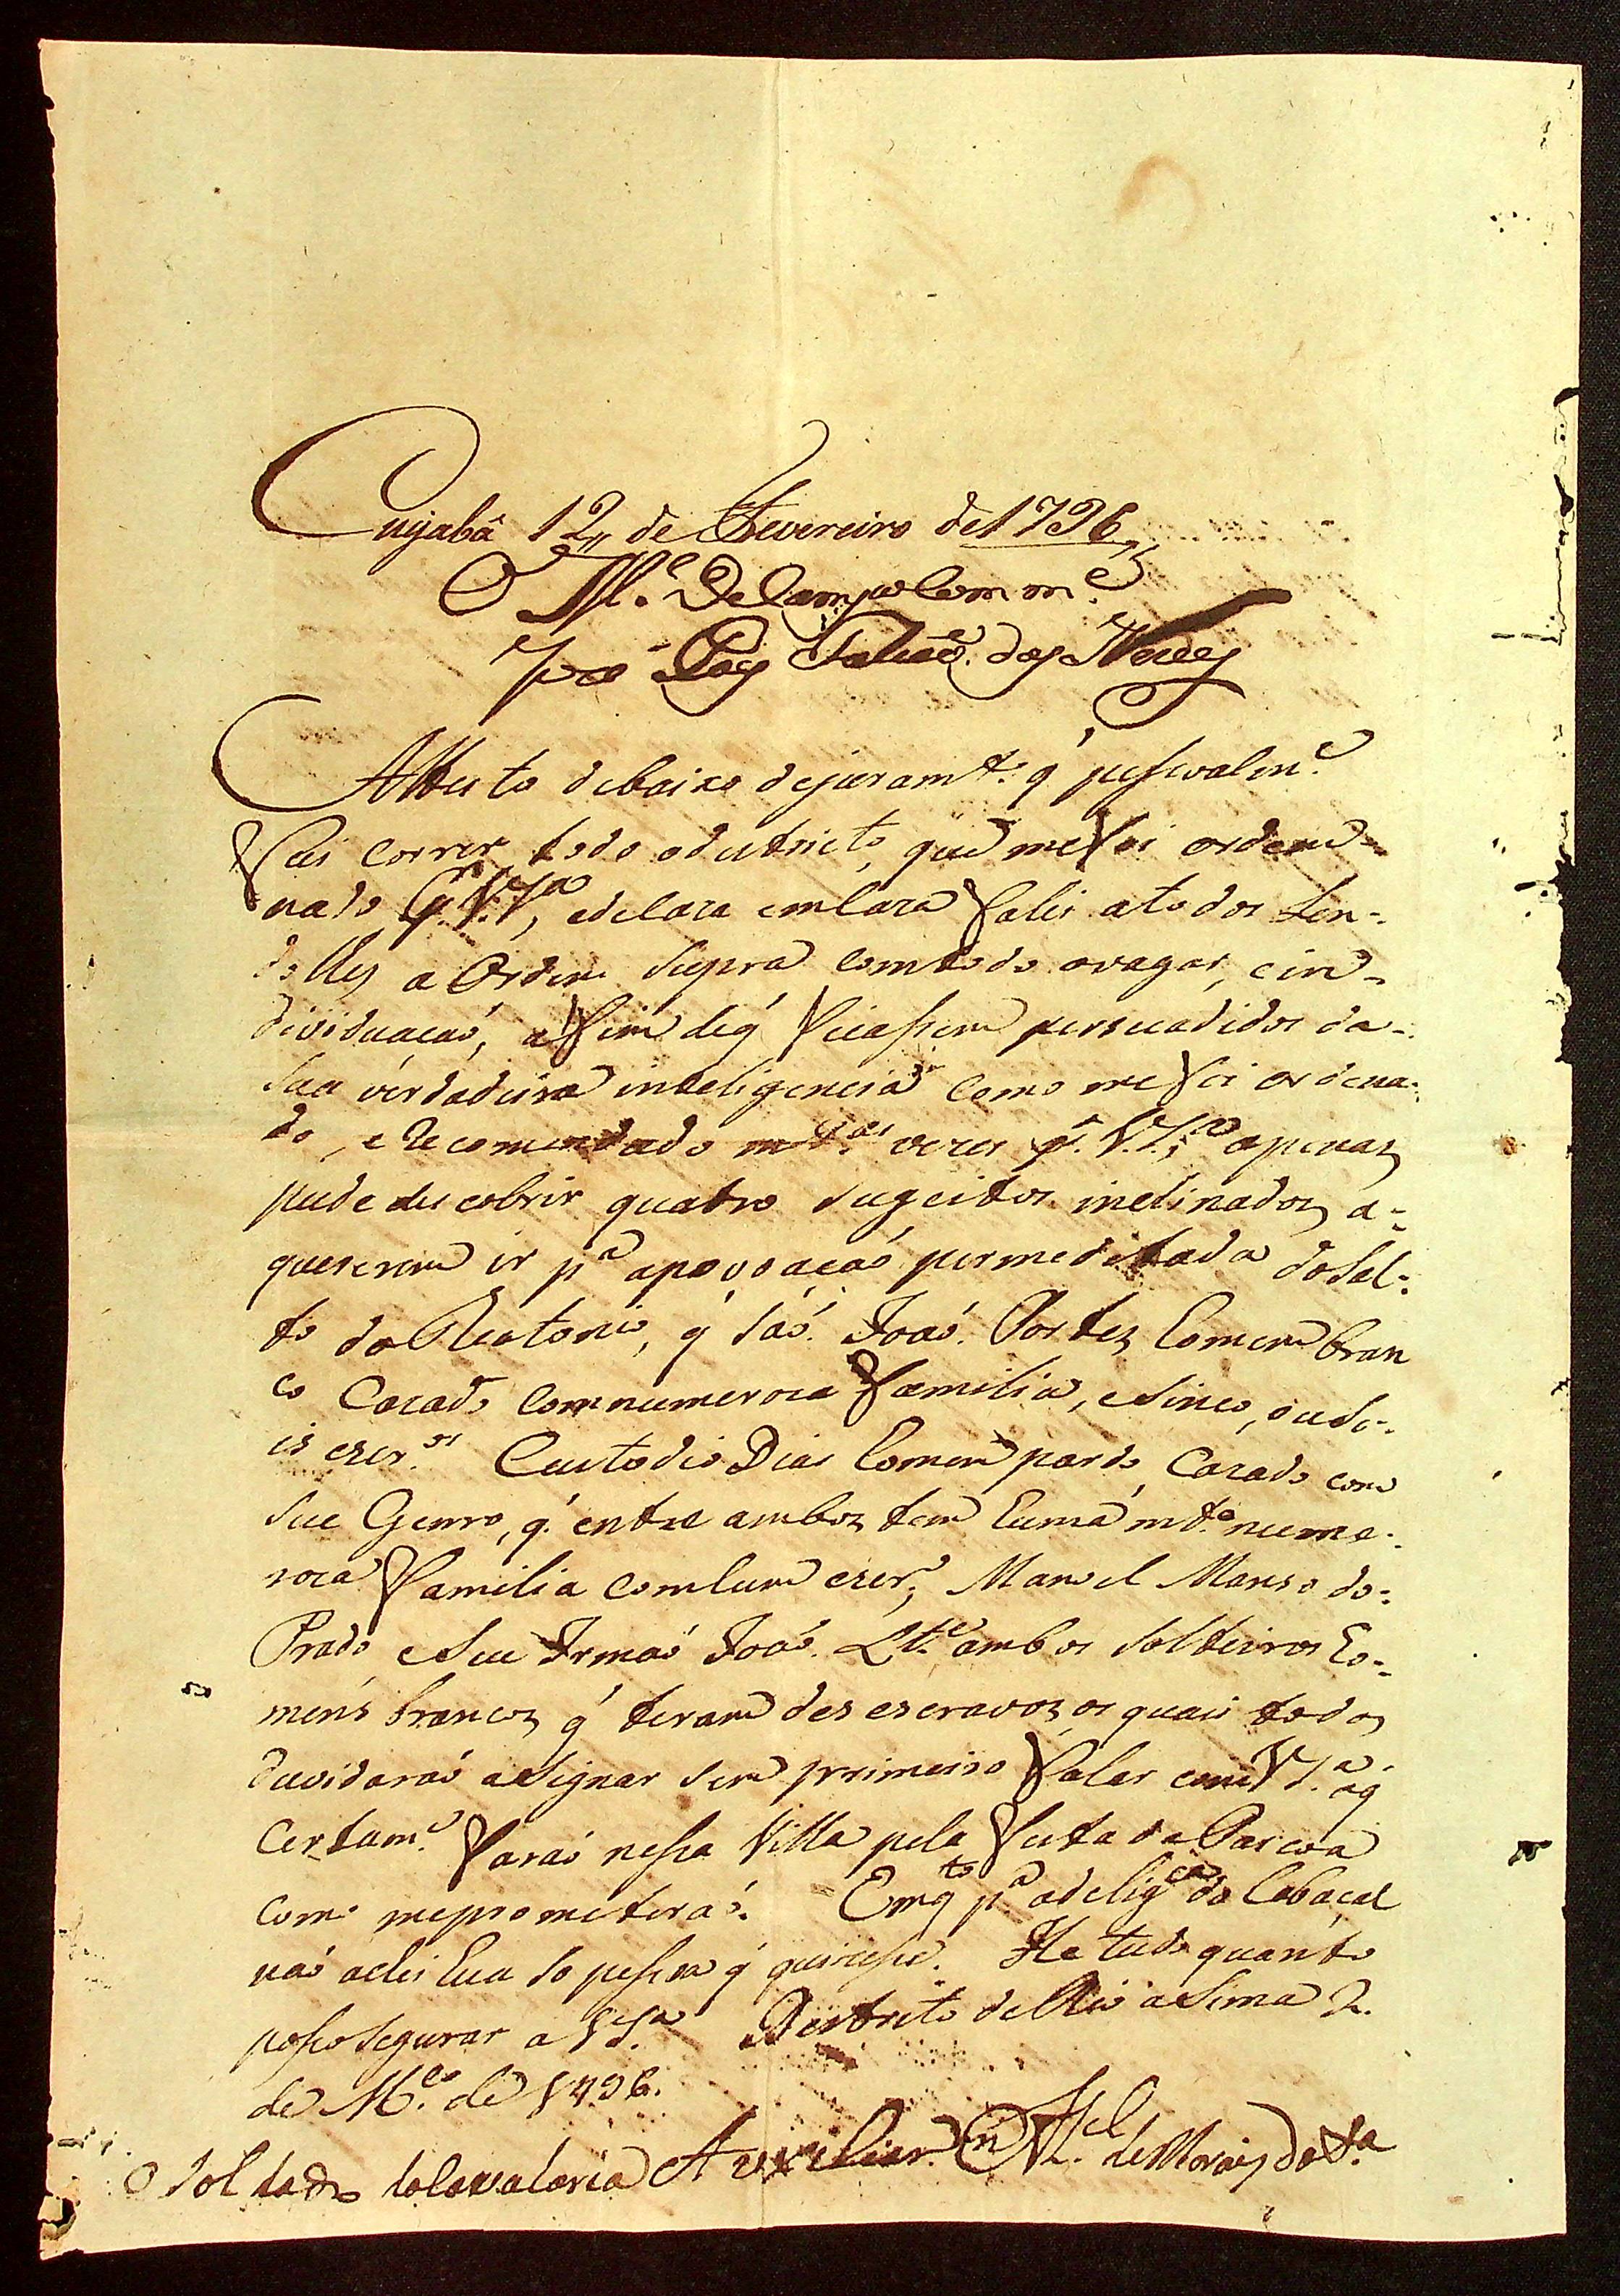 Cuyabâ 12,, de Fevereiro de 1796,,
O M.e De Campo Comm.e
Joze Paes Falcaõ das Neves
Attesto debaixo dejuram.to q' pessoalm.e
Fui correr todo odestricto, que mefoi orde-
nado p.r V.S.a, edecara emcara falei atodos Len-
dolhes a Ordem supra comtodo ovagar, ein-
dividuacaó, afim deq' ficassem persuadidos da-
sua verdadeira inteligencia como mefoi ordena-
do, eRecomendado m.tas vezes p.r V.S.a, apenas
pude descobrir quatro sugeitos inclinados a-
quererem ir p.a apovoaçaó permeditada doSal-
to do Theotonio, q' saó. Joaó. Portes Eomem bran
co Cazado comnumeroza familia, esinco, ouse-
is escr.os Custodio Dias Eomem pardo, Cazado com
Seu Genro, q' entre ambos tem Euma m.to nume-
roza familia comhum escr.o, Manoel Manso do-
Prado, eSeu Irmaó Joaó. L.te ambos solteiros Eo-
mens brancos q' teram des escravos os quais todos
duvidaraó asignar sem primeiro falar com V.S.a oq'
Certam.e faraó nessa Villa pela festa da Pascoa
como meprometeraó. Emq.to p.a adelig.ca do Cabaçal
naó achei Eua so pessoa q' quizesse. He tudo quanto
posso segurar a V.S.a Destrito de Rio asima 2.
de M.ço de 1796.
O Soldado daCavalaria Auxiliar M.el de Morais da S.a